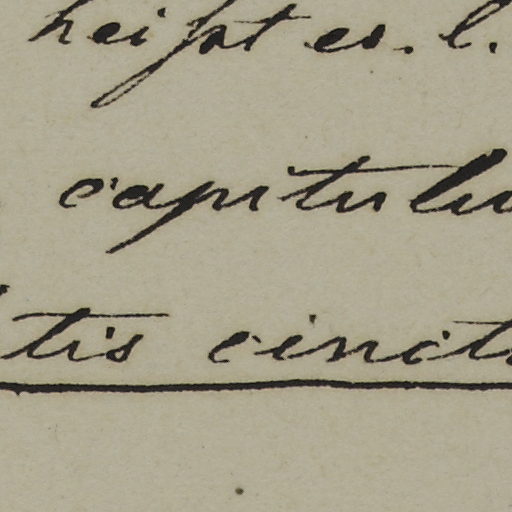 heißt es. l.
capitulu
tis cinct